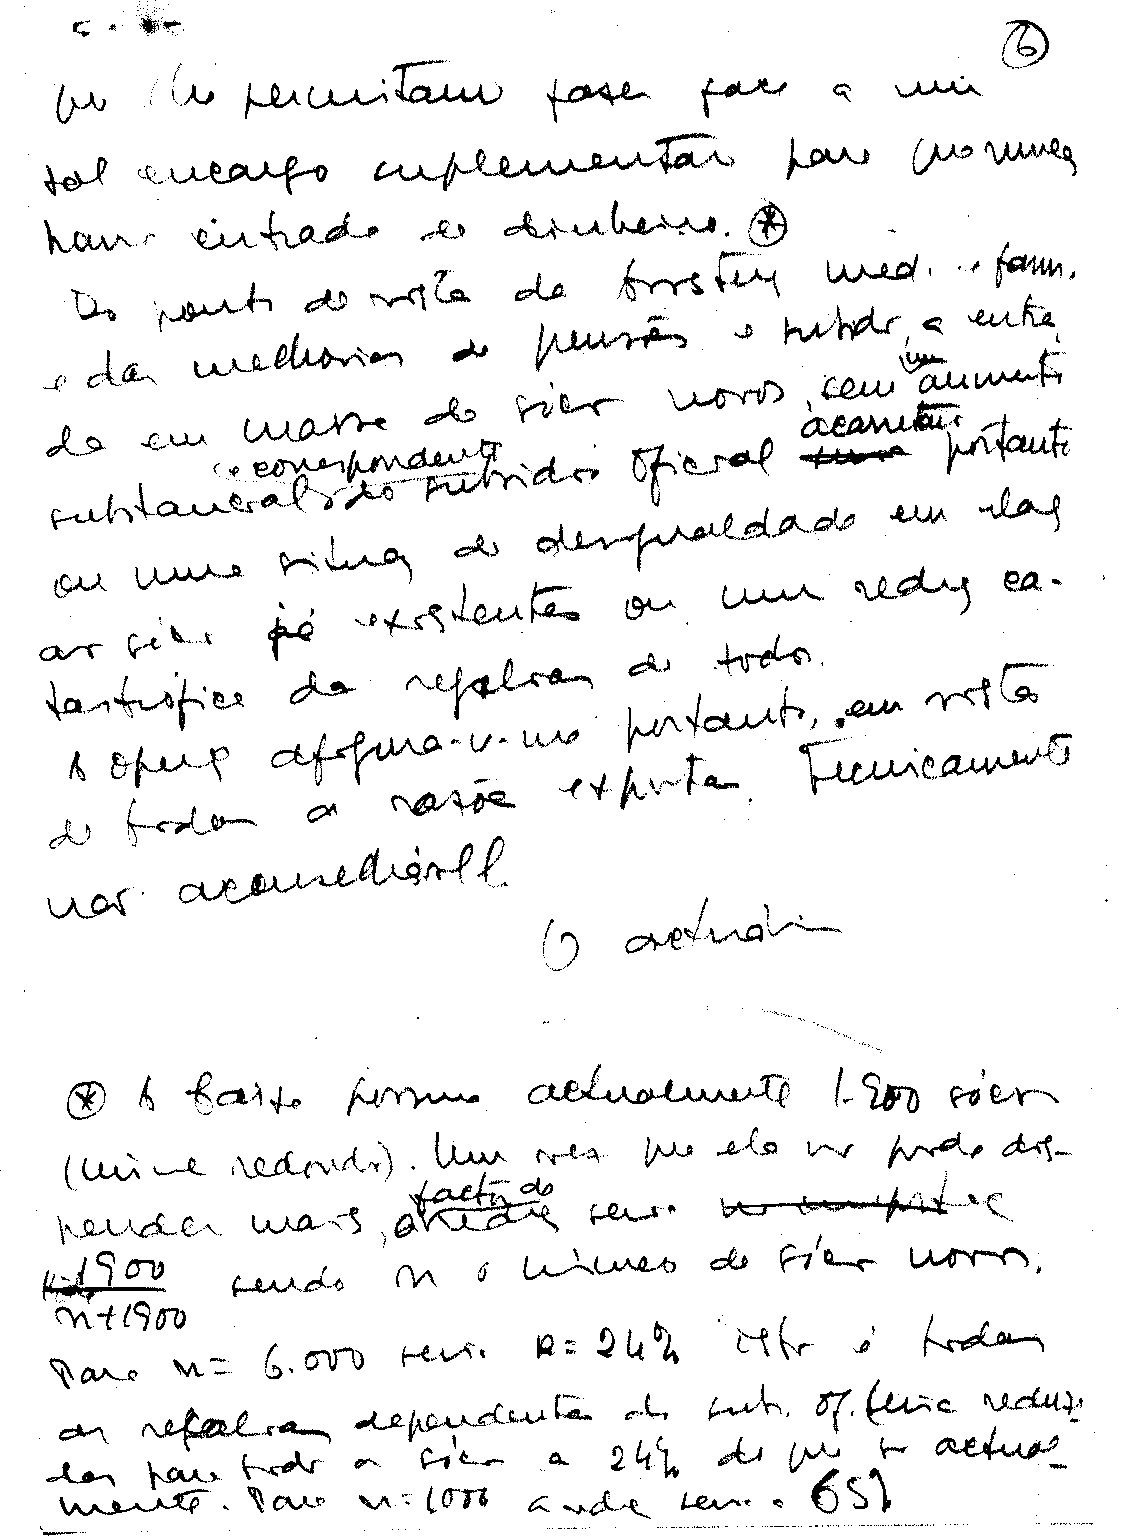 6
que lhe permitam fazer face a um
tal encargo suplementar para que nunca
haver entrada de dinheiro. *
Do ponto de vista da med. e farm.
e das melhorias de pensões e subsídio, a entra
da em massa de sócios novos, sem um aumento
substancial e correspondente do subsídio oficial acarretaria portanto
ou uma situação de desigualdade em relação
aos sócios já existentes ou uma redução ca-
tastrófica da regalias de todos.
A operação afigura-se-me portanto, em vista
de todas as razões expostas, tecnicamente
não aconselhável.
O actuário
* A Caixa possue actualmente 1.900 sócios
(número redondo). Uma vez que ela não pode dis-
pender mais, o factor de redução seria
1900
n+1900
sendo n o número de sócios novos.
Para n = 6.000 seria R = 24% isto é todas
as regalias dependentes do sub. of. seria reduzi-
das para todos os sócios a 24% do que são actual-
mente. Para n = 1000 ainda seria 65%